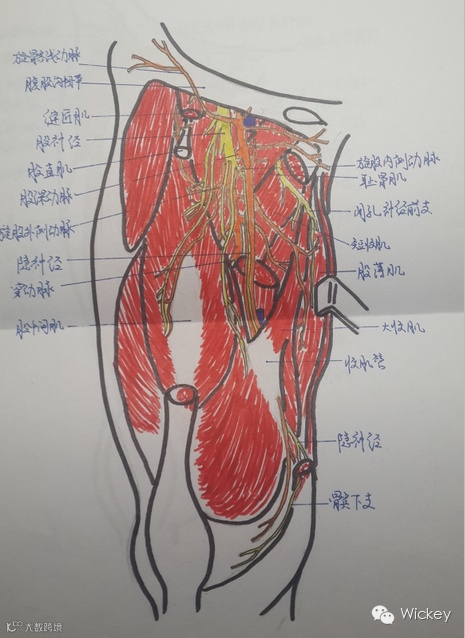 旋髂浅动脉
腹股沟韧带
缝匠肌
股神经
股直肌
股深动脉
旋股外侧动脉
隐神经
穿动脉
股中间肌
旋股内侧动脉
耻骨肌
闭孔神经前支
短收肌
股薄肌
大收肌
收肌管
隐神经
髌下支
Wickey
大数跨境